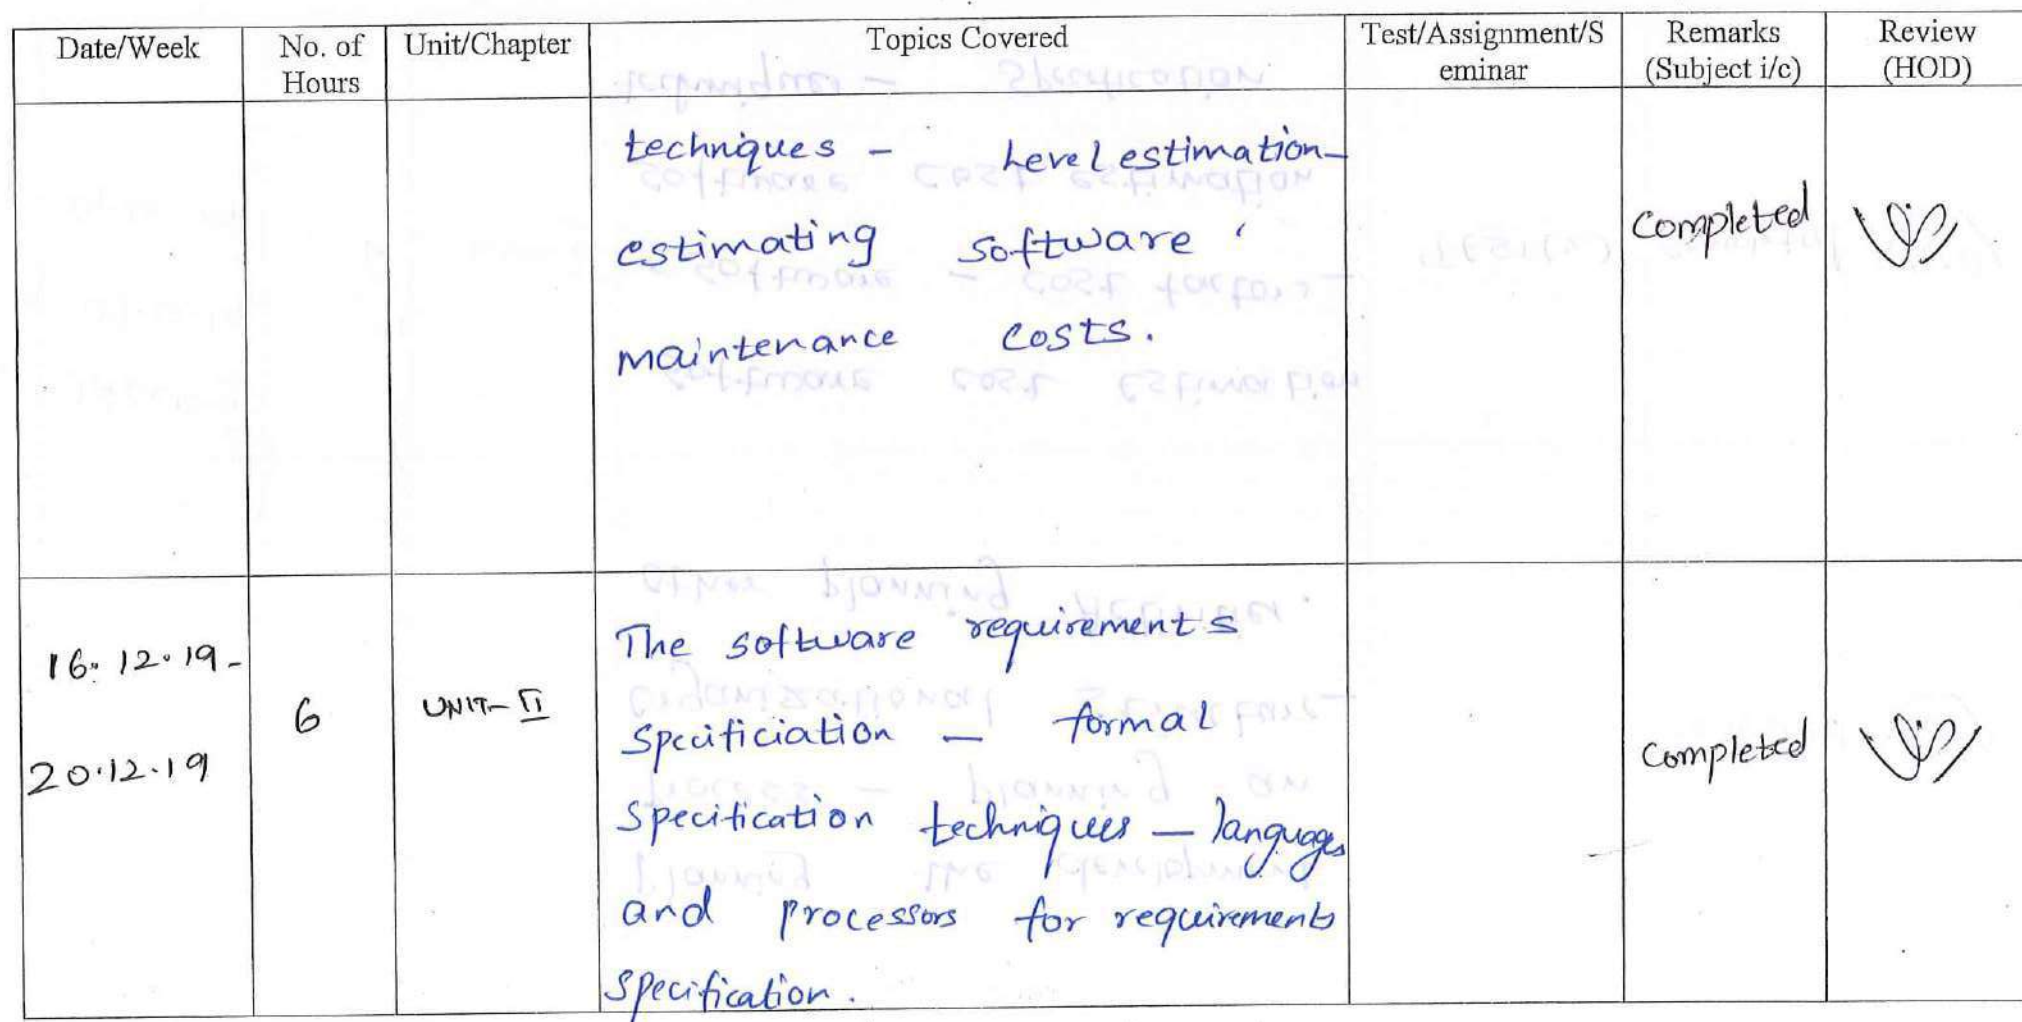 Date/Week No. of Hours Unit/Chapter Topics Covered Test/Assignment/S eminar Remarks (Subject i/c) Review (HOD)
techniques - Level estimation-
estimating software
maintenance costs.
Completed
16.12.19-
20.12.19
6
UNIT-II
The software requirements
specificiation - formal
specification techniques - languages
and processors for requirements
specification.
Completed